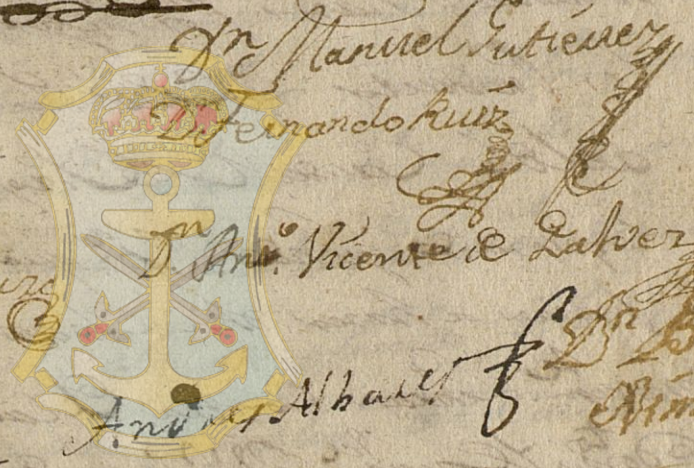 Dn Manuel Gutierrez
Dn Fernando Ruiz
Dn Anto. Vicente de Galvez
Andres Albares
Dn